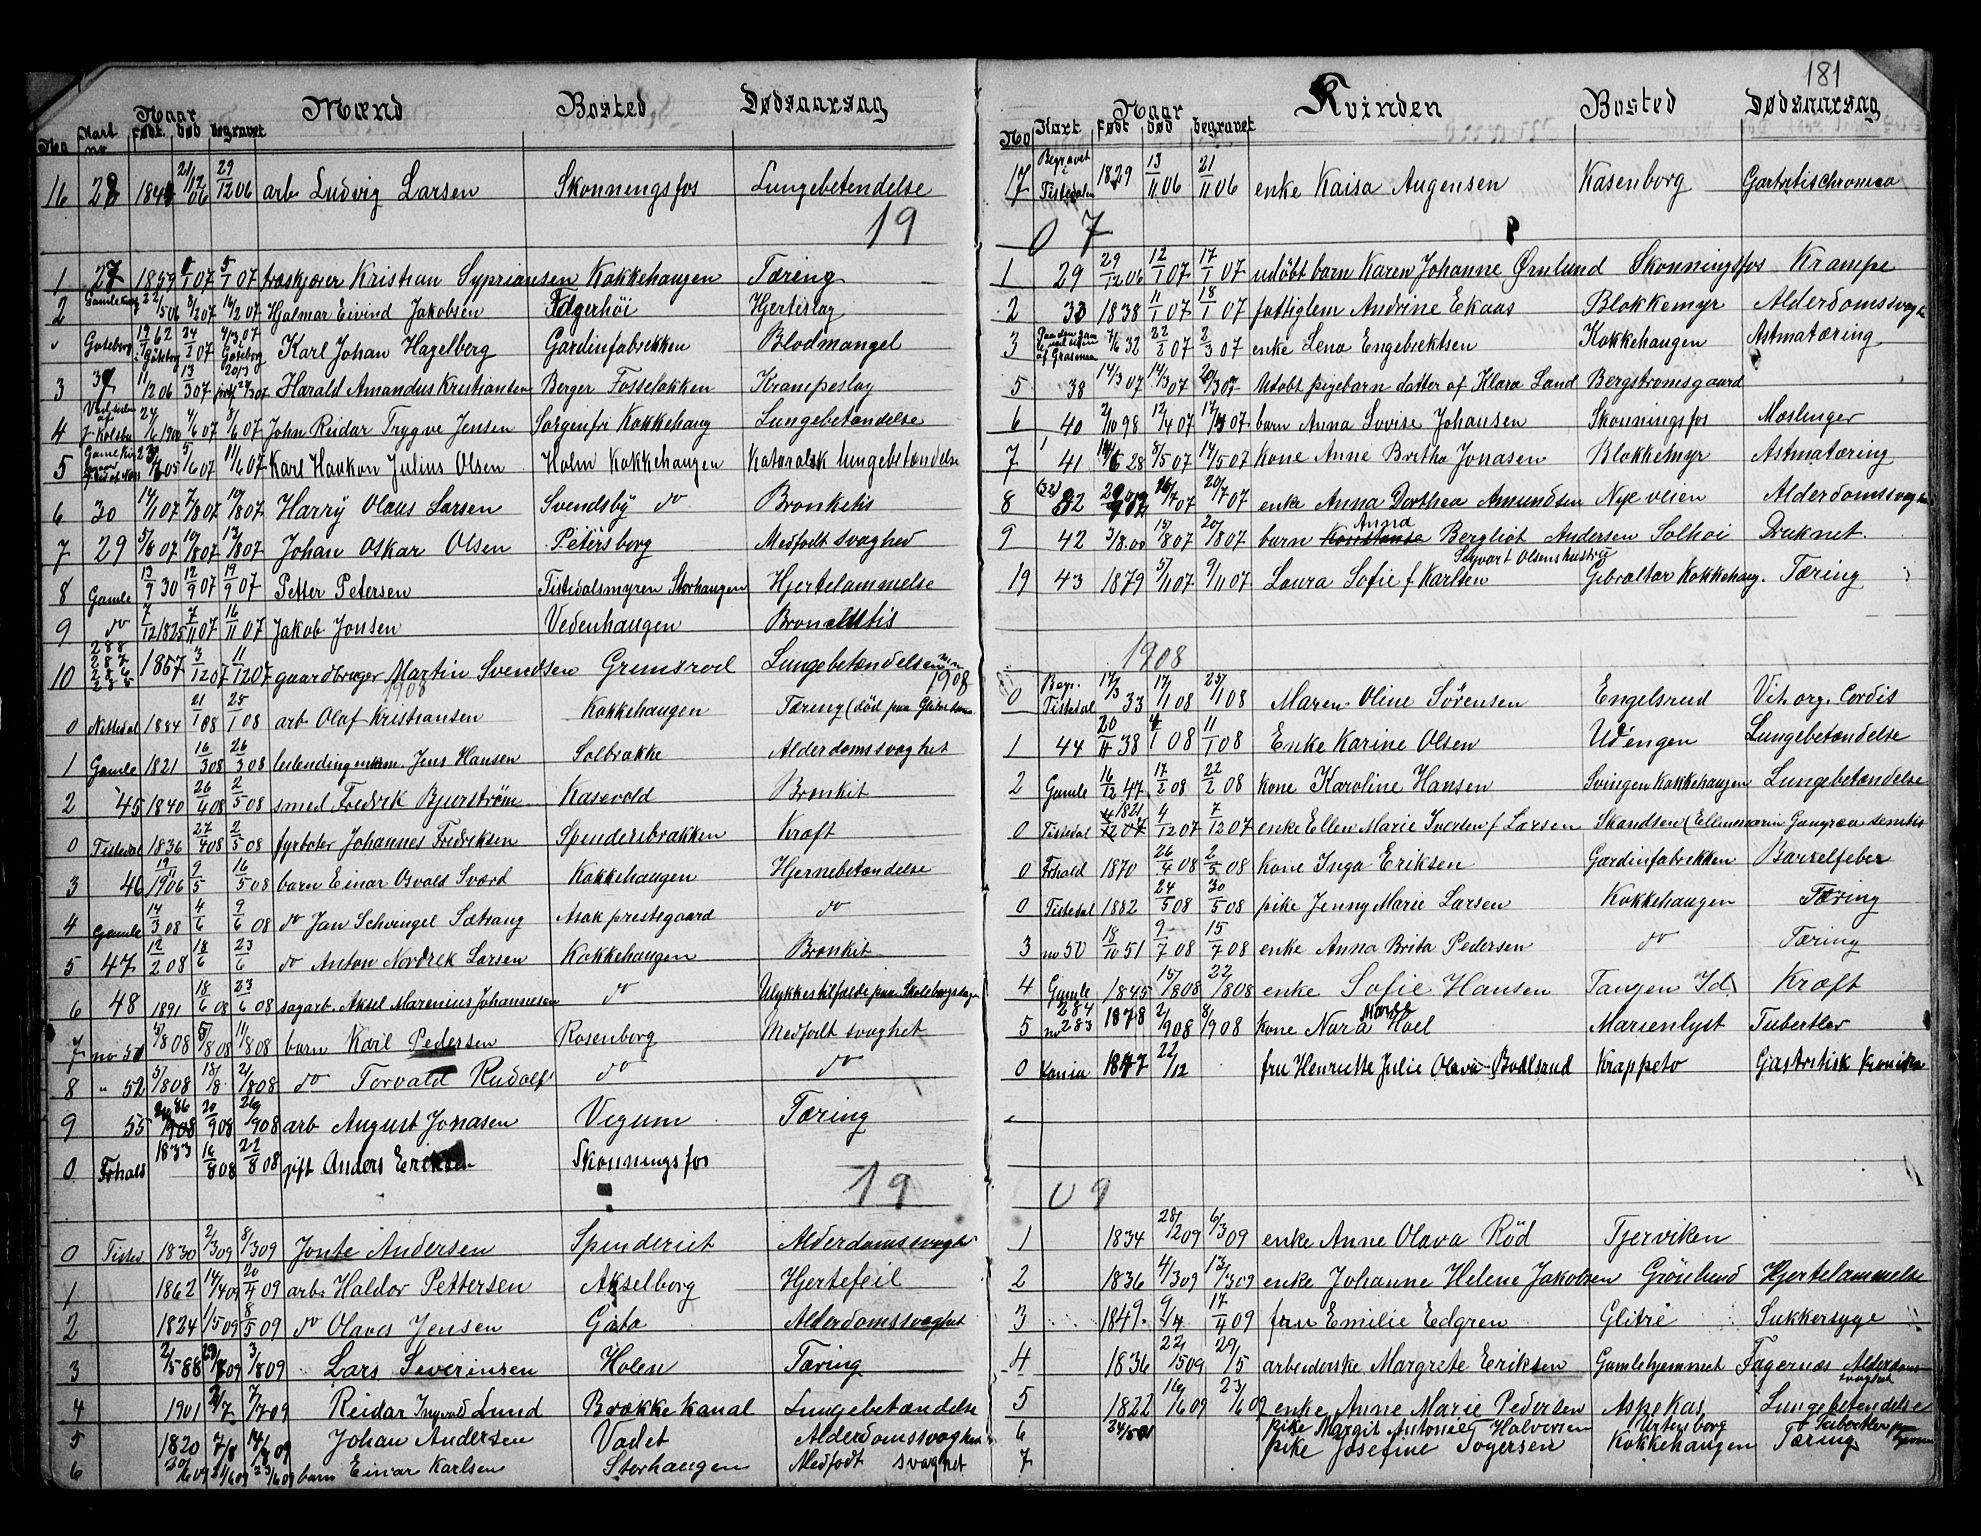 181
Naar Mænd Bosted Dødsaarsag
No Kart no Født død begravet
16 28 184 21/12 06 29/12 06 arb Ludvig Larsen Skonningsfos Lungebetendelse
19
1 27 1859 /1 07 5/1 07 træskjærer Kristian Sypriansen Kokkehaugen Tæring
2 22/5 06 8/2 07 16/2 07 Hjalmar Eivind Jakobsen Fagerhöi Hjerteslag
" Gøteborg 19/1 62 i Gøteborg 24/2 07 4/3 07 i Gøteborg Karl Johan Hagelberg Gardinfabrekken Blodmangel
3 37 11/12 06 13/3 07 20/3 Harald Amandus Kristiansen Berger Fosseløkken Krampeslag
4 24/6 1900 4/6 07 8/6 07 John Reidar Trygve Jensen Sorgenfri Kokkehaug Lungebetændelse
5 05 5/6 07 11/6 07 Karl Haakon Julius Olsen Holm Kokkehaugen Katoralsk lungebetændelse
6 30 14/1 07 7/8 07 10/8 07 Harry Olaus Larsen Svendsby do Bronketis
7 29 5/8 07 10/8 07 13/8 07 Johan Oskar Olsen Petersborg Medfødt svaghed
8 Gamle 13/9 30 12/9 07 19/9 07 Petter Petersen Tistedalsmyren Storhaugen Hjertelammelse
9 do 7/12 1825 7/11 07 16/11 07 Jakob Jonsen Vedenhaugen
10 288 287 286 1857 3/12 07 11/12 07 gaardbruger Martin Svendsen Grimsrød Lungebetændelse
1908 1908
0 Nettedal 1884 21/1 08 25/1 08 arb Olaf Kristiansen Kokkehaugen Tæring (død paa
1 Gamle 1821 16/3 08 26/3 08 Jens Hansen Solbakke Alderdomssvaghet
2 45 1840 26/4 08 2/5 08 smed Fredrk Bjurstrøm Kasevold Bronkit
0 Tistedal 1836 27/4 08 2/5 08 fyrbøter Johannes Fredriksen Spendersbrakken Kræft
3 46 19/11 1906 9/5 16/5 08 barn Einar Osvald Sværd Kokkehaugen Hjernebetændelse
4 Gamle 14/3 08 4/6 9/6 08 do Jan Schvingel Sætrang Asak prestegaard do
5 47 12/2 08 18/6 23/6 do Anton Nordrek Larsen Kokkehaugen Bronkit
6 48 1891 18/6 08 23/6 08 sagarb. Aksel Marenius Johannesen do Ulykkestilfælde paa Skolebergshagen
7 no 51 5/8 08 5/8 08 11/8 08 barn Karl Pedersen Rosenborg Medfødt svaghet
8 " 52 5/8 08 18/8 21/8 08 do Torvald Rudolf do do
9 55 86 20/9 08 26/9 08 arb August Jonasen Vegum Tæring
0 Frhald 1833 16/8 08 22/8 08 gift Anders Eriksen Skonningsfos
19
0 Tisted 1830 2/3 09 8/3 09 Jonte Andersen Spinderiet Alderdomssvaghet
1 1862 14/4 09 20/4 09 arb. Haldor Pettersen Akselborg Hjertefeil
2 1824 1/5 09 8/5 09 do Olaves Jensen Gata Alderdomssvaghet
3 2/5 88 09 3/8 09 Lars Severinsen Holen Tæring
4 1901 2/7 7/7 09 Reidar Ingvald Lund Brække kanal Lungebetændelse
5 1820 7/8 14/8 09 Johan Andersen Vadet Alderdomssvaghet
6 20/6 09 21/6 09 23/6 09 barn Einar Karlsen Storhaugen Medfødt svaghet
Naar Kvinden Bosted Dødsaarsag
No Kart Født død begravet
17 Begravet i Tistedalen 1829 13/11 06 21/11 06 enke Kaisa Augensen Kasenborg
07
1 29 29/12 06 12/1 07 17/1 07 udøbt barn Karen Johanne Ørnlund Skonningsfos Krampe
2 33 1838 11/1 07 18/1 07 fattiglem Andrine Ekaas Blokkemyr Alderdomssvaghe
3 7/6 32 22/2 07 2/3 07 enke Lena Engebrektsen Kokkehaugen Astmatæring
5 38 14/3 07 14/3 07 20/3 07 Udøbt pigebarn datter af Klara Lund Bergstrømsgaard
6 40 2/10 98 12/4 07 17/4 07 barn Anna Lovise Johansen Skonningsfos Mæslenger
7 41 28 8/5 07 14/5 07 kone Anne Britha Jonasen Blokkemyr Astmatæring
8 (32) 32 26/7 07 20/7 07 enke Anna Dorthea Amundsen Nye veien Alderdomssvaghed
9 42 3/8 00 15/8 07 20/8 07 barn Konstanse Anna Bergliøt Andersen Solhøi Druknet.
19 43 1879 5/11 07 9/11 07 Laura Sofie f Karlsen Sigvart Olsens hustru Gibraltar Kokkehaug. Tæring
1908
0 Begr. Tistedal 17/3 33 17/1 08 25/1 08 Maren Oline Sørensen Engelsrud Vit. org. Cordis
1 44 20/11 38 4/1 08 11/1 08 Enke Karine Olsen Udengen Lungebetændelse
2 Gamle 16/12 47 17/2 08 22/2 08 kone Karoline Hansen Svingen Kokkehaugen Lungebetændelse
0 Tistedal 1821 4/12 07 7/12 07 enke Ellen Marie Iversen f Larsen Skandsen (Ellen Gangræn senilis
0 Frhald 1870 26/4 08 2/5 08 kone Inga Eriksen Gardinfabrekken Barselfeber
0 Tistedal 1882 24/5 08 30/5 08 pike Jenny Marie Larsen Kokkehaugen Tæring
3 no 50 18/10 51 9/7 08 15/7 08 enke Anna Brita Pedersen do Tæring
4 Gamle 1845 15/8 08 22/8 08 enke Sofie Hansen Tangen Id Kræft
5 no 284 283 1878 2/9 08 8/9 08 kone Nora Hoel Marienlyst Tubertler
0 Kania 1847 22/12 fru Henriette Julie Olava Bodlsrud Krappeto Gastritisk kroniken
09
1 1834 28/2 09 6/3 09 enke Anne Olava Rød Tjerviken
2 1836 4/3 09 13/3 09 enke Johanne Helene Jakobsen Grönlund Hjertelammelse
3 1849 9/4 17/4 09 fru Emilie Edgren Glitre Sukkersyge
4 1836 22/5 09 29/5 arbeiderske Margrete Eriksen Gamlehjemmet Fagernæs Alderdomssvaghet
5 1822 16/6 09 23/6 09 enke Anne Marie Pedersen Aspekas Lungebetendelse
6 24/5 01 pike Margit Antonie Halvorsen Urtensborg Tubertler
7 pike Josefine Torgersen Kokkehaugen Tæring